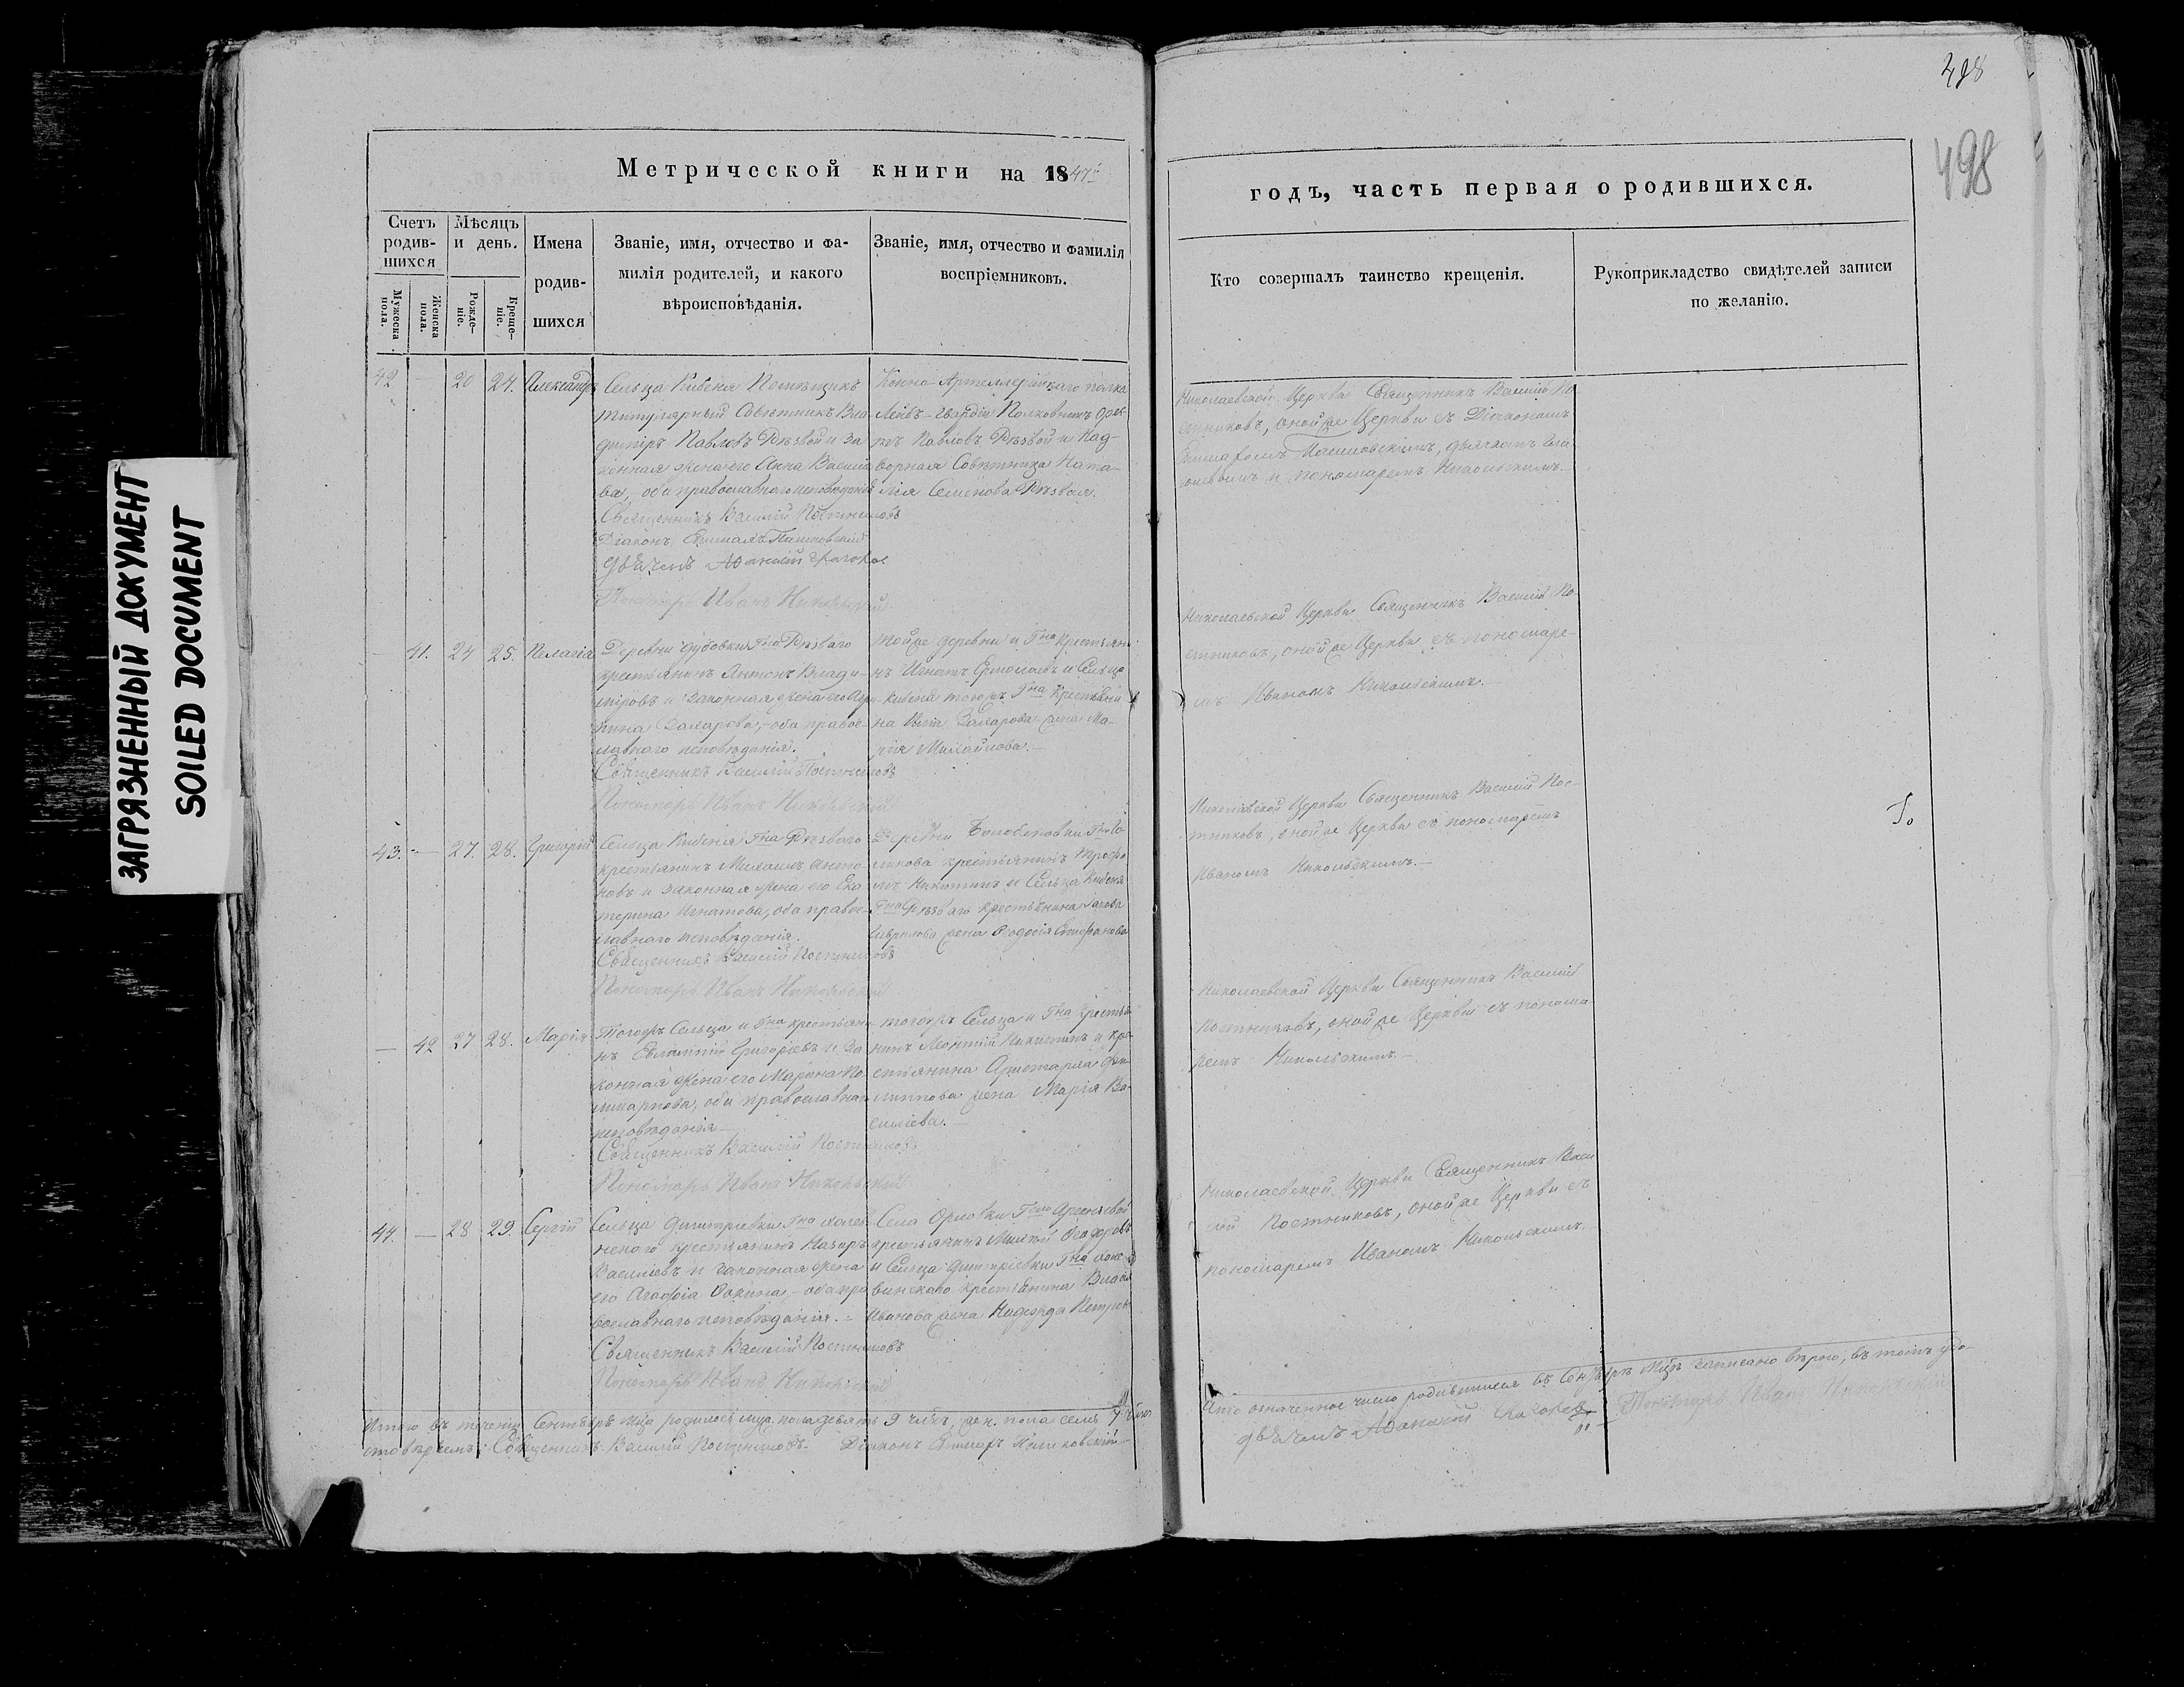 498
498
ЗАГРЯЗНЕННЫЙ ДОКУМЕНТ
SOILED DOCUMENT
Метрической книги на 1847й
годъ, часть первая о родившихся.
Счетъ родив-шихся
Мужеска пола.
Женска пола.
Мѣсяцъ и день.
Рожде-ніе.
Креще-ніе.
Имена родив-шихся
Званіе, имя, отчество и фа-
милія родителей, и какого
вѣроисповѣданія.
Званіе, имя, отчество и фамилія
воспріемниковъ.
Кто совершалъ таинство крещенія.
Рукоприкладство свидѣтелей записи
по желанію.
42 — 20 24. Александръ
Сельца Кибеня Помѣщикъ
титулярный Совѣтникъ Вла-
димiръ Павловъ Рѣзвой и за-
конная жена его Анна Василье-
ва, оба православнаго исповѣданія
Священникъ Василій Постниковъ
Діаконъ
дьячекъ Афанасій
Пономарь Иванъ Никольскій
Конно-Артиллерійскаго полка
Лейбъ-Гвардіи Полковникъ Оре-
стъ Павловъ Рѣзвой и Над-
ворная Совѣтница Ната-
лія Семенова Рѣзвая.
Николаевской Церкви Священникъ Василій По-
стниковъ, оной же Церкви съ Діакономъ
дьячкомъ
и пономаремъ Никольскимъ.
— 41. 24 25. Пелагія
Деревни Дубовки Гна Рѣзваго
крестьянинъ Антонъ Влади-
міровъ и законная жена его
Захарова, оба правос-
лавнаго исповѣданія.
Священникъ Василій Постниковъ
Пономарь Иванъ Никольскій
Той же деревни и Гна Крестьяни-
нъ Игнатъ Ермолаевъ и Сельца
Кибеня тогожъ Гна Крестьяни-
на Захарова жена Ма-
рія Михайлова.
Николаевской Церкви Священникъ Василій По-
стниковъ, оной же Церкви съ пономаре-
мъ Иваномъ Никольскимъ.
43. — 27. 28. Григорій
Сельца Кибеня Гна Рѣзваго
крестьянинъ Михаилъ Анто-
новъ и законная жена его Ека-
терина Игнатова, оба правос-
лавнаго исповѣданія.
Священникъ Василій Постниковъ
Пономарь Иванъ Никольскій
Деревни
крестьянинъ Трофи-
мъ Никитинъ и Сельца Кибеня
Гна Рѣзваго крестьянина
Гаврилова жена Ѳеодосія Епифанова
Николаевской Церкви Священникъ Василій Пос-
тниковъ, оной же Церкви съ пономаремъ
Иваномъ Никольскимъ.
— 42 27 28. Марія
Тогожъ Сельца и Гна крестьяни-
нъ Евлампій Григорьевъ и за-
конная жена его Марина По-
ликарпова, оба православнаго
исповѣданія
Священникъ Василій Постниковъ
Пономарь Иванъ Никольскій
тогожъ Сельца и Гна Крестья-
нинъ Леонтій Никитинъ и кре-
стьянина Аристарха Фи-
липпова жена Марія Ва-
сильева.
Николаевской Церкви Священникъ Василій
Постниковъ, оной же Церкви съ понома-
ремъ Никольскимъ.
44. — 28 29. Сергій
Сельца Димитріевки Гна
крестьянинъ Назаръ
Васильевъ и законная жена
его Агафія Фокина, оба пра-
вославнаго исповѣданія.
Священникъ Василій Постниковъ
Пономарь Иванъ Никольскій
Села Орловки Гжи Арсеньевой
крестьянинъ Михей Ѳеодоровъ
и Сельца Димитріевки Гна
крестьянина
Иванова жена Надежда Петрова
Николаевской Церкви Священникъ Васи-
лій Постниковъ, оной же Церкви съ
пономаремъ Иваномъ Никольскимъ.
Итого въ теченіи Сентября мца родилось муж. пола девять 9 члкъ, жен. пола семь 7 члкъ
Что означенное число родившихся въ Сентябрѣ мцѣ записано вѣрно, въ томъ удо-
стовѣряемъ: Священникъ Василій Постниковъ. Діаконъ
дьячекъ Афанасій
Пономарь Иванъ Никольскій